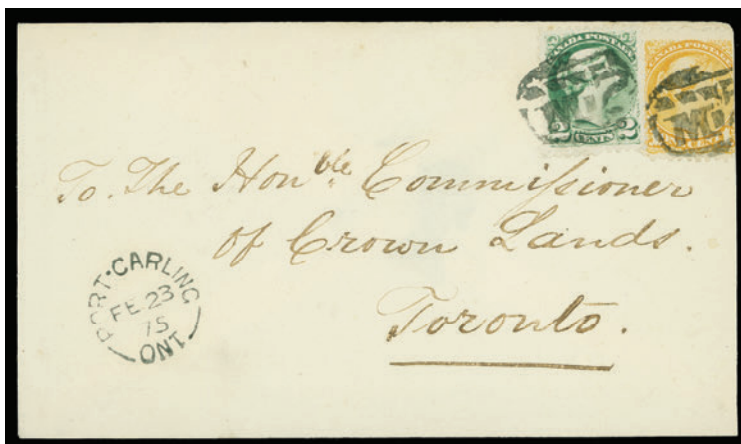 CANADA POSTAGE
2 CENTS 2
CANADA POSTAGE
To. The Honble Commissioner
of Crown Lands.
Toronto.
PORT·CARLING
FE 23
75
ONT